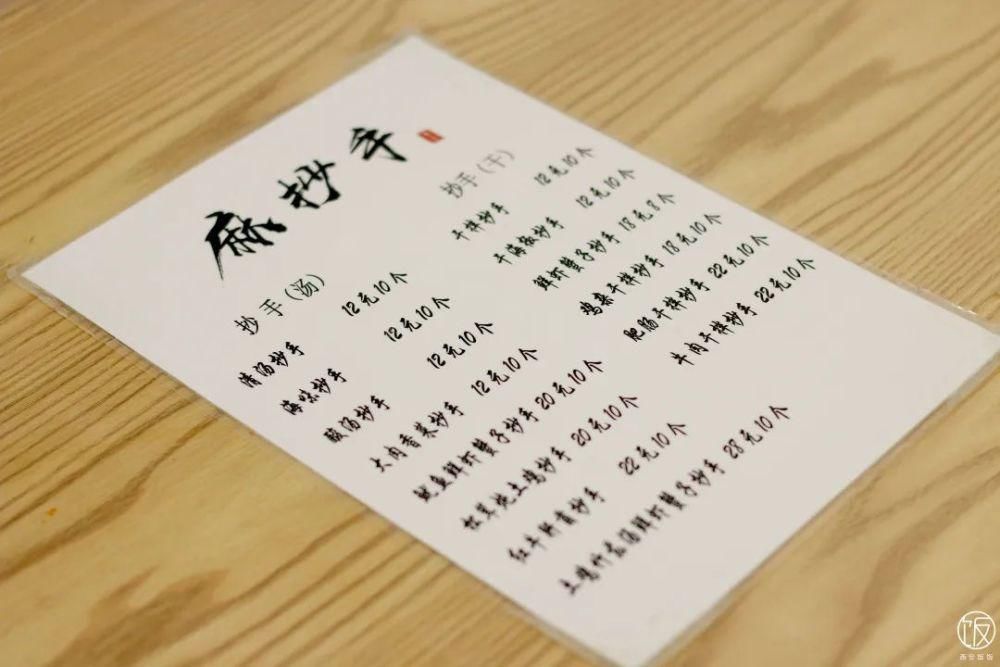 麻抄手
抄手(汤)
清汤抄手 12元10个
海味抄手 12元10个
酸汤抄手 12元10个
大肉香菜抄手 12元10个
鱿鱼鲜虾蟹子抄手 20元10个
松茸炖土鸡抄手 20元10个
红牛肝菌抄手 22元10个
土鸡竹荪汤鲜虾蟹子抄手 28元10个
抄手(干)
干拌抄手 12元10个
干海椒抄手 12元10个
鲜虾蟹子抄手 18元8个
鸡杂干拌抄手 18元10个
肥肠干拌抄手 22元10个
牛肉干拌抄手 22元10个
饭
西安饭饭